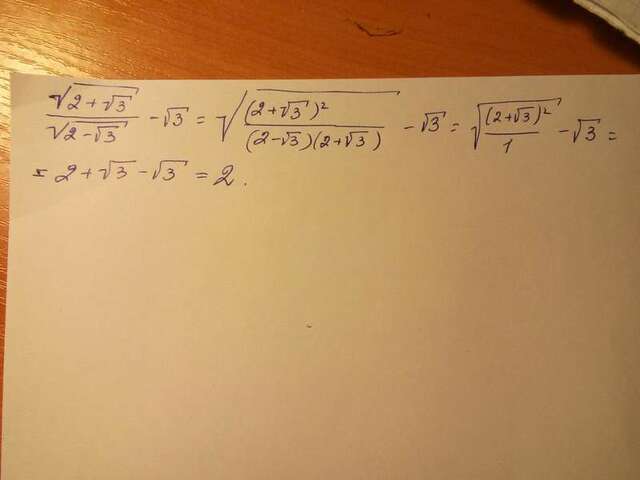 √(2+√3)/√(2-√3) - √3 = √((2+√3)²/((2-√3)(2+√3))) - √3 = √((2+√3)²/1) - √3 =
= 2+√3 - √3 = 2.